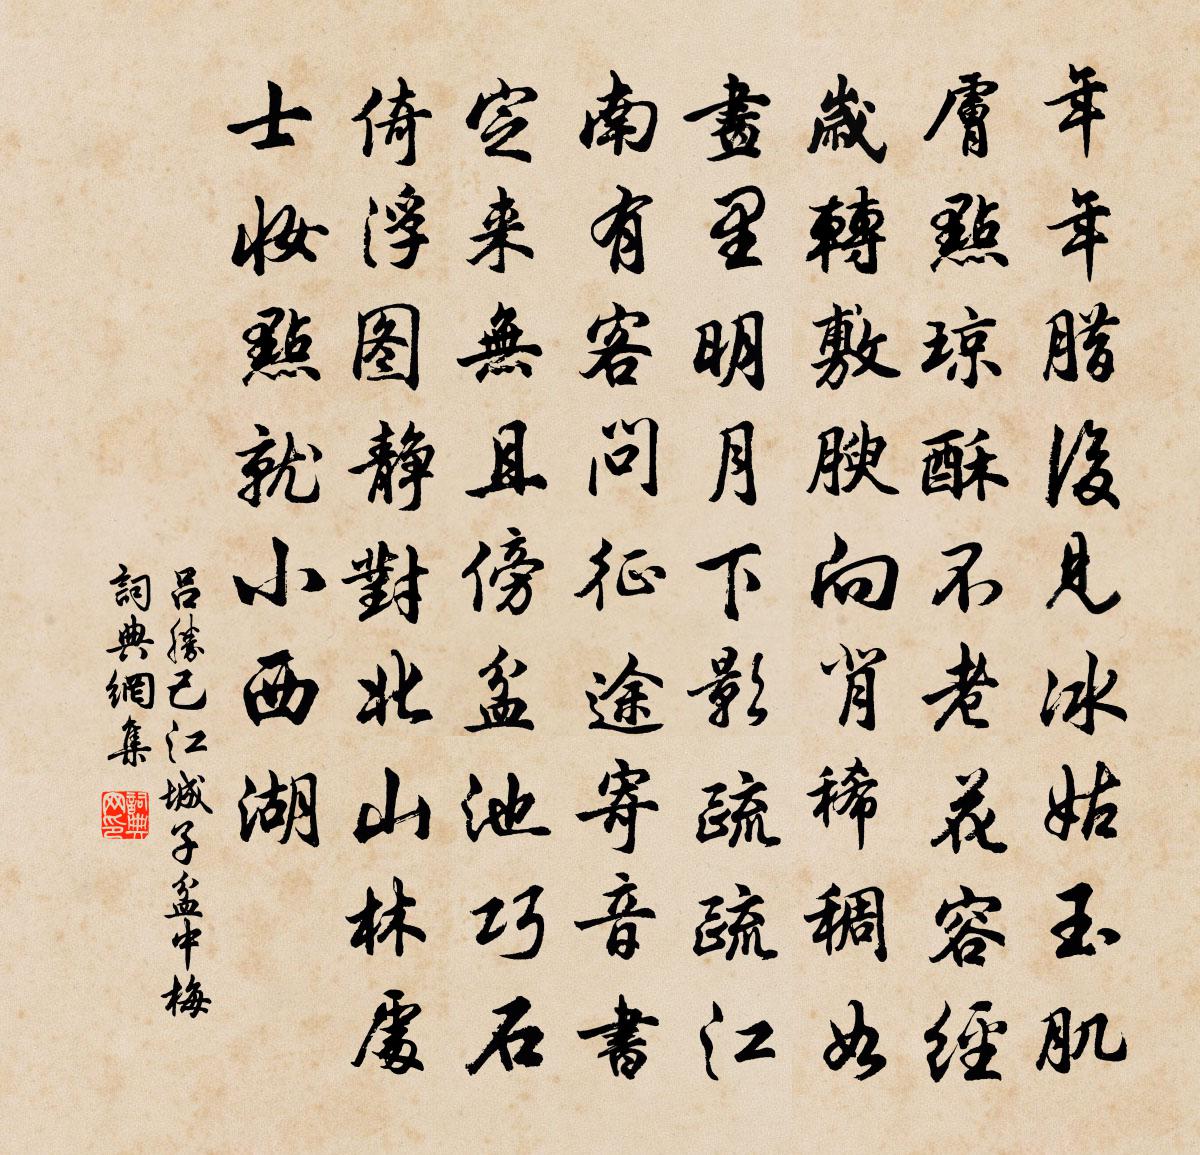 年年腊後見冰姑玉肌
膚點琼酥不老花容經
歲轉敷腴向背稀稠如
畫里明月下影疏疏江
南有客問征途寄音書
定来無且傍盆池巧石
倚浮图靜對北山林處
士妝點就小西湖
吕勝己江城子盆中梅
詞典網集
詞典網印